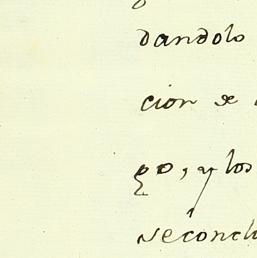 dandolo
cion se
go, y los
seconclu